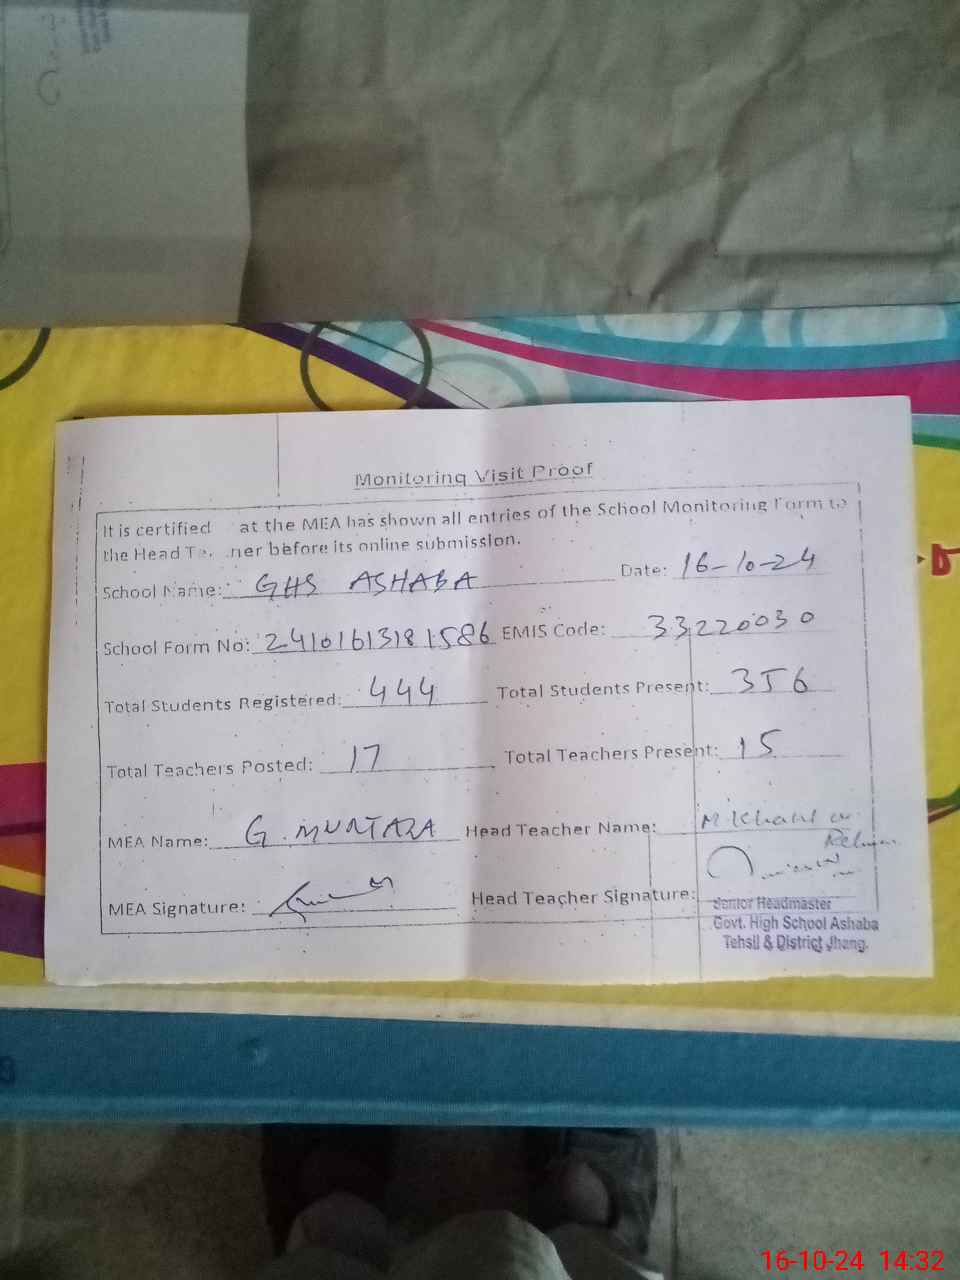 Monitoring Visit Proof
It is certified at the MEA has shown all entries of the School Monitoring Form to
the Head Te. .ner before its online submission.
School Name: GHS ASHABA Date: 16-10-24
School Form No: 2410161318 1586 EMIS Code: 33220030
Total Students Registered: 444 Total Students Present: 356
Total Teachers Posted: 17 Total Teachers Present: 15
MEA Name: G. MURTAZA Head Teacher Name: M Khalil ur
Rehman
MEA Signature: Head Teacher Signature:
Senior Headmaster
Govt. High School Ashaba
Tehsil & District Jhang.
16-10-24 14:32